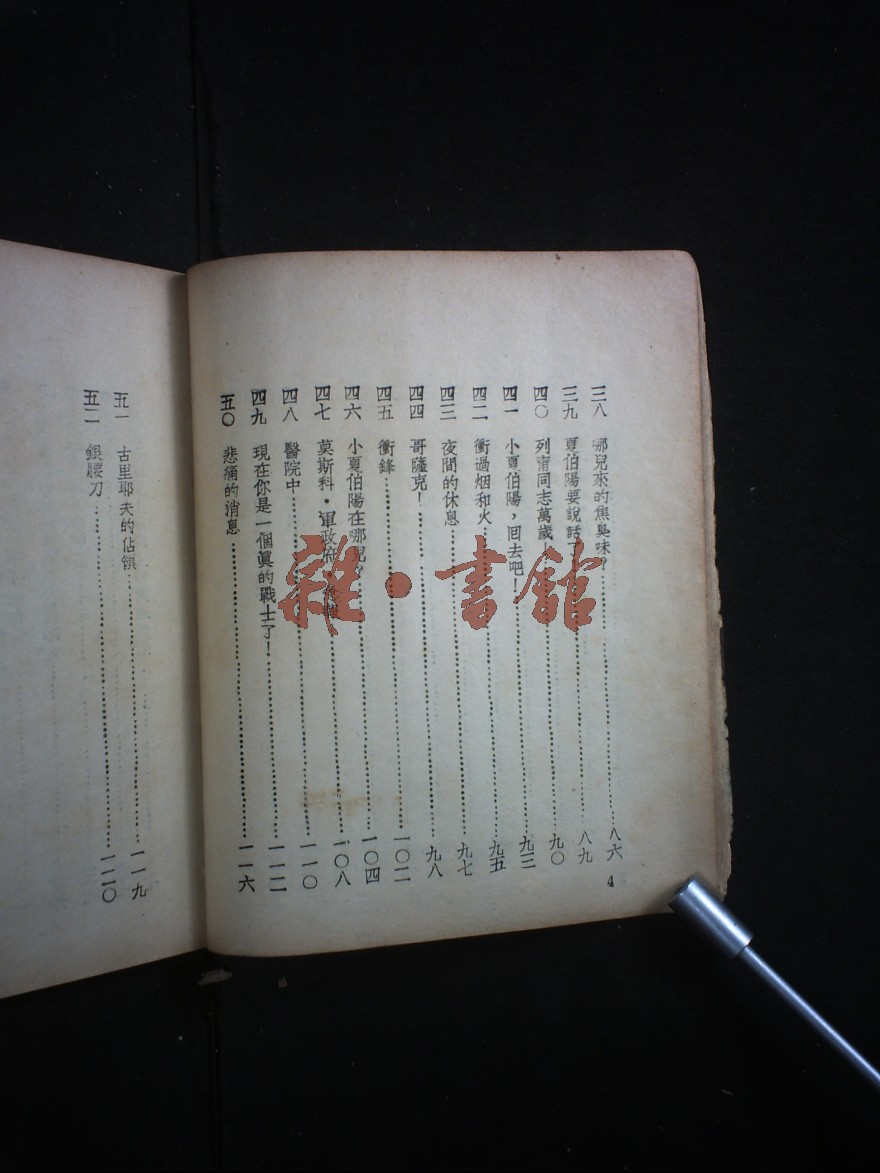 三八 哪兒來的焦臭味？……八六
三九 夏伯陽要說話了……八九
四〇 列甯同志萬歲……九〇
四一 小夏伯陽，回去吧！……九三
四二 衝過烟和火……九五
四三 夜間的休息……九七
四四 哥薩克！……九八
四五 衝鋒……一〇二
四六 小夏伯陽在哪兒？……一〇四
四七 莫斯科・軍政府・……一〇八
四八 醫院中……一一〇
四九 現在你是一個眞的戰士了！……一一二
五〇 悲痛的消息……一一六
4
五一 古里耶夫的佔領……一一九
五二 銀腰刀……一二〇
雜・書館